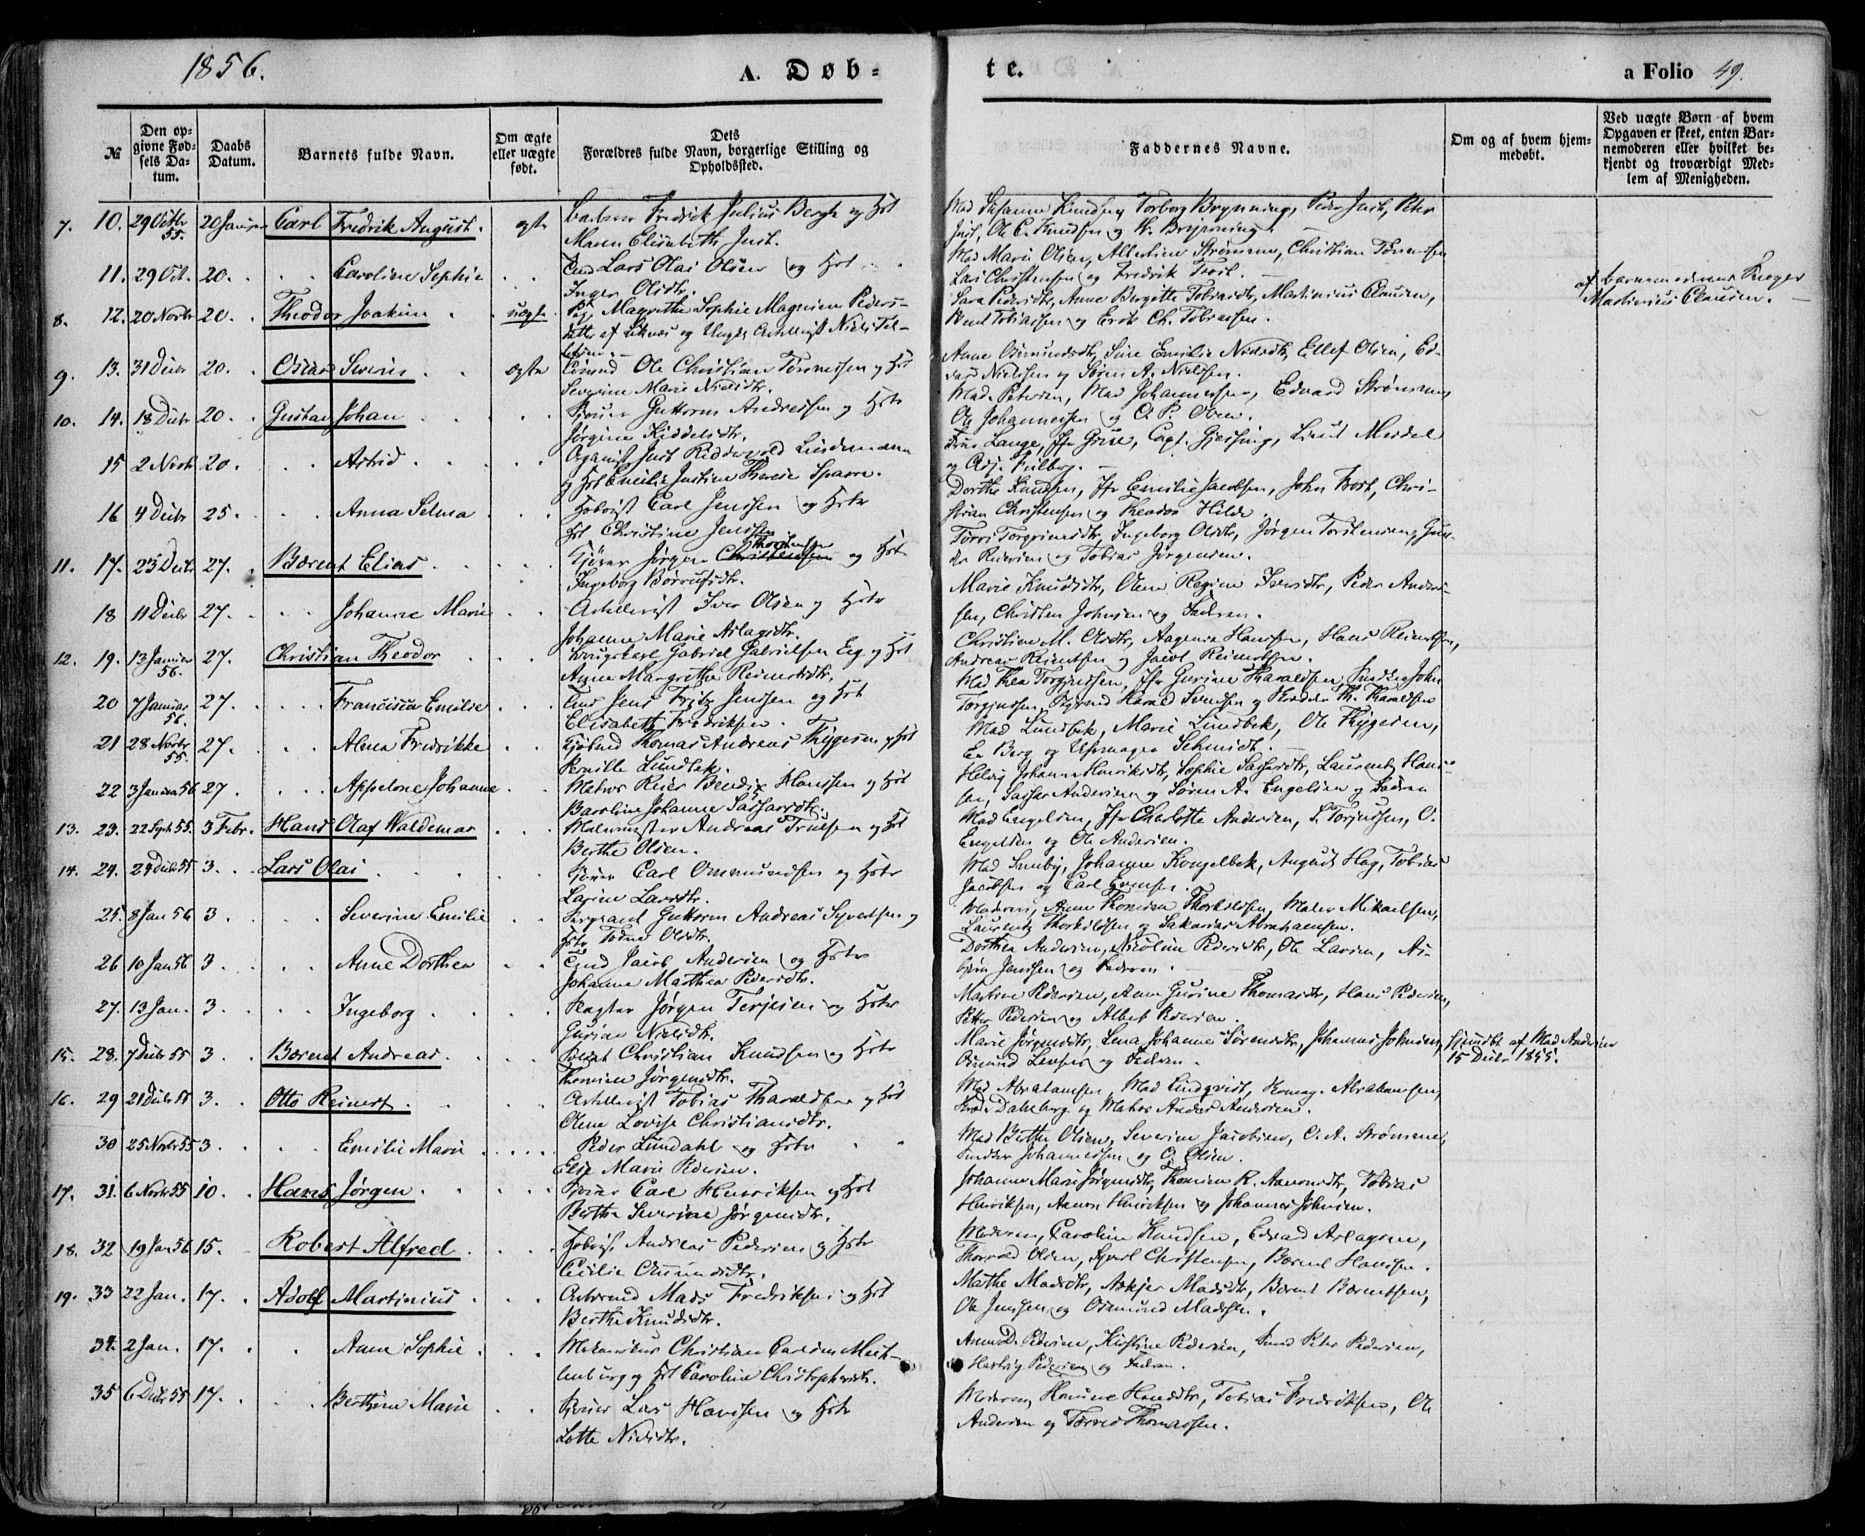 1856.
A. Døb-
te.
a Folio 49.
№
Den op-
givne Fød-
sels Da-
tum.
Daabs
Datum.
Barnets fulde Navn.
Om ægte
eller uægte
født.
Dets
Forældres fulde Navn, borgerlige Stilling og
Opholdssted.
Faddernes Navne.
Om og af hvem hjem-
medøbt.
Ved uægte Børn af hvem
Opgaven er skeet, enten Bar-
nemoderen eller hvilket be-
kjendt og troværdigt Med-
lem af Menigheden.
7. 10. 29 Octbr 55. 20 Januar Carl Fredrik August. ægte Fredrik Julius Bergh og Hst
Maren Elisabeth Just.
Mad Susanne Knudsen, Torborg Brynning, Peder Just, Peter
Just, Ole C. Knudsen og Brynning.
11. 29 Oct. 20. Caroline Sophie Lars Olai Olsen og Hst
Inger Olsdtr.
Mad Marie Olsen, Albertine Strømme, Christian Tønnesen
Lars Christensen og Fredrik
8. 12. 20 Novbr 20. Theodor Joakim uægte Pig. Margrethe Sophie Magnine Peders-
datter af og Ungk. Artillerist Niels Tel-
lefsen.
Sara Pedersdtr, Anne Bergitte Tobiasdtr, Martinius Clausen,
Bent Tobiassen og Erik Ch. Tobiassen.
af barnemoderens Svoger
Martinius Clausen.
9. 13. 31 Debr 20. Oscar Severin ægte Ole Christian Tønnessen og Hst
Severine Marie Nielsdtr.
Anne Osmundsdtr, Sine Emilie Nielsdtr, Ellef Olsen, Ed-
vard Nielsen og Søren A. Nielsen.
10. 14. 18 Debr 20. Gustav Johan Guttorm Andreassen og Hstr
Jørgine Kiddelsdtr.
Mad. Petersen, Mad Johannessen, Edvard Strømme
Ole Johannessen og O. P. Olsen.
15 2 Novbr 20. Astrid Organist Just Riddervold Lindemann
og Hst Emilie Justine Therese Sparre.
Frue Lange, Jfr Grise, Capt. Gjessing, Lieut Mejdel
og Adj. Kilborg.
16 4 Debr 25. Anna Selma Carl Jenssen og Hstr
Hst Christine Jenssen
Dorthe Knudsen, Jfr Emilie Jacobsen, John Trost, Chri-
stian Christensen og Theodor Hilde.
11. 17. 23 Debr 27. Bærent Elias Jørgen Christensen Thorstensen og Hst
Ingeborg Børrufsdtr.
Torri Torgrimsdtr, Ingeborg Olsdtr, Jørgen Torstensen, Gun-
der Pedersen og Tobias Jørgensen.
18 11 Debr 27. Johanne Marie Artillerist Iver Olsen og Hstr
Johanne Marie Aslagsdtr.
Marie Knudsdtr, Olene Regine Iversdtr, Peder Ander-
sen, Christen Johnsen og Faderen.
12. 19. 13 Januar 56. 27. Christian Theodor Gabriel Gabrielsen Eeg og Hst
Anne Margrethe Reinertsdtr.
Christine M. Olsdtr, Aagenie Hanssen, Hans Reinertsen,
Andreas Reinertsen og Jacob Reinertsen.
20 7 Januar 56. 27. Francisca Emilie Jens Fritz Jenssen og Hst
Elisabeth Fredriksen.
Mad Thea Torjussen, Jfr Gurine Haraldsen, Snedker John
Torjussen, Harald Svendsen og Th. Haraldsen
21 28 Novbr 55. 27. Alma Fredrikke Thomas Andreas Thygesen og Hst
Pernille Lundbek.
Mad Lundbek, Marie Lundbek, Ole Thygesen,
En Berg og Uhrmager Schmidt.
22 3 Januar 56 27. Appelone Johanne Matros Reier Bendix Hanssen og Hst
Baroline Johanne Sassersdtr.
Helvig Johanne Henriksdtr, Sophie Sassersdtr, Laurentz Hans-
sen, Sasser Andersen og Søren A. Engelsen og Faderen
13. 23. 22 Sept 55. 3 Febr. Hans Olaf Waldemar Andreas Truelsen og Hst
Berthe Olsen.
Mad Engelsen, Jfr Charlotte Andersen, S. Torjussen, O.
Engelsen og Ole Andersen.
14. 24. 24 Debr 55 3. Lars Olai Carl Ommundsen og Hstr
Larine Larsdtr.
Mad Sundby, Johanne Kongelbek, August Hag, Tobias
Jacobsen og Carl Evensen.
25. 8 Jan 56 3. Severine Emilie Sergeant Guttorm Andreas Syvertsen og
Hstr Tomine Olsdtr.
Moderen, Anne Thomine Thorkildsen, Malene Mikaelsen,
Laurentz Thorkildsen og Sakarias Abrahamsen.
26 10 Jan 56 3. Anne Dorthea Jacob Andersen og Hstr
Johanne Marthea Pedersdtr.
Dorthea Andersen, Nicoline Pedersdtr, Ole Larsen, As-
bjørn Jenssen og Faderen.
27. 13 Jan. 3. Ingeborg Slagter Jørgen Terjesen og Hstr
Gurine Nielsdtr.
Martine Pedersen, Anne Gurine Thomasdtr, Hans Pedersen,
Petter Pedersen og Albert Pedersen.
15. 28. 7 Debr 55 3. Bærent Andreas Christian Knudsen og Hstr
Thomine Jørgensdtr.
Marie Jørgensdtr, Lena Johanne Sørensdtr, Johannes Johnsen,
Osmund Larsen og Faderen.
hjemdbt af Mad Andersen
15 Debr 1855.
16. 29 21 Debr 55 3. Otto Reinert Artillerist Tobias Tharaldsen og Hst
Olene Lovise Christiansdtr.
Md Abrahamsen, Mad Lindqvist, Abrahamsen,
Dahlberg og Matros Anders Andersen.
30 25 Novbr 55 3. Emilie Marie Peder Lundahl og Hstr
Else Marie Pedersen.
Mad Berthe Olsen, Severine Jacobsen, C. A. Strømme,
Snedker Johannessen og O. Olsen.
17. 31. 6 Novbr 55 10. Hans Jørgen Carl Henriksen og Hst
Berthe Severine Jørgensdtr.
Johanne Marie Jørgensdtr, Thomine R. Aanonsdtr, Tobias
Henriksen, Aanon Henriksen og Johannes Johnsen.
18. 32 19 Jan 56 15. Robert Alfred Andreas Pedersen og Hstr
Cecilie Osmundsdtr.
Moderen, Caroline Knudsen, Edvard Aslagsen,
Thorvald Olsen, Christensen, Bærent Hanssen.
19. 33 22 Jan. 17. Adolf Martinius Mads Fredriksen og Hst
Berthe Knudsdtr.
Mathe Madsdtr, Askjer Madsdtr, Bærent Bærentsen,
Ole Jenssen og Osmund Madssen.
34. 2 Jan. 17. Anne Sophie Mekanikus Christian Carlsen Meck-
lenburg og Hst Caroline Christophersdtr.
Anne D. Pedersen, Kirstine Pedersen, Peter Pedersen,
Hartvig Pedersen og Faderen.
35 6 Debr 55 17. Berthine Marie Lars Hanssen og Hstr
Lotte Nielsdtr.
Moderen, Hansdtr, Tobias Fredriksen, Ole
Andersen og Thomassen.